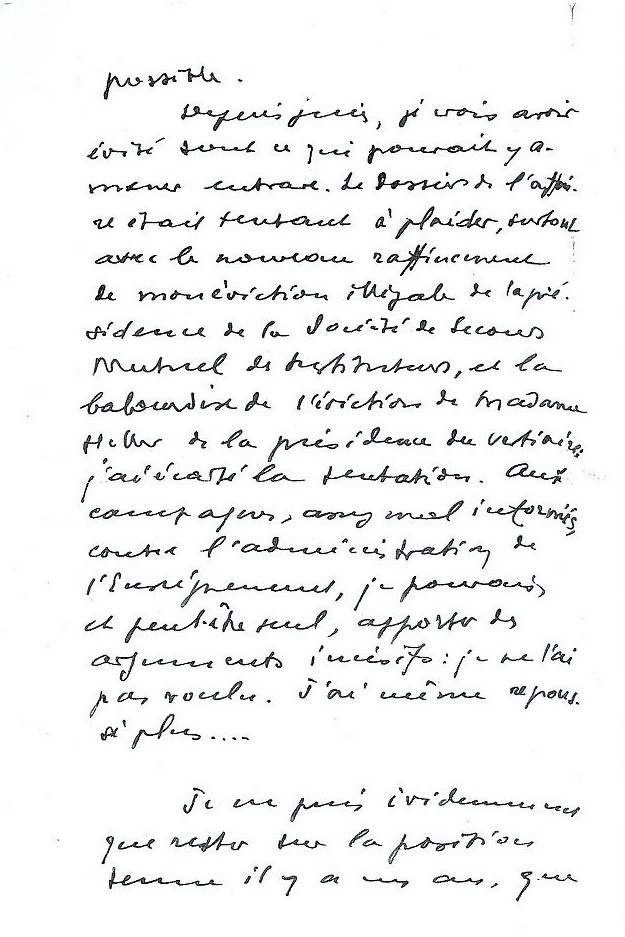 possible.
Depuis juin, je crois avoir
évité tout ce qui pourrait y a-
mener entrave. Le dossier de l'affai-
re était tentant à plaider, surtout
avec le nouveau raffinement
de mon éviction illégale de la pré-
sidence de la Société de Secours
Mutuel des Instituteurs, et la
balourdise de l'éviction de Madame
Heller de la présidence du vestiaire:
j'ai écarté la tentation. Aux
campagnes, assez mal informées,
contre l'administration de
l'Enseignement, je pouvais,
et peut-être seul, apporter des
arguments incisifs: je ne l'ai
pas voulu. J'ai même repous-
sé plus....
Je ne puis évidemment
que rester sur la position
tenue il y a un an, que